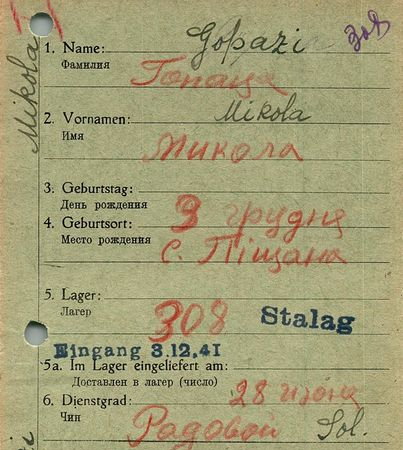 Mikola
308
1. Name: Gopazi
Фамилия
Гопаца
2. Vornamen: Mikola
Имя
Микола
3. Geburtstag:
День рождения
3 грудня
4. Geburtsort:
Место рождения
с. Піщана
5. Lager:
Лагер
308 Stalag
Eingang 3.12.41
5a. Im Lager eingeliefert am:
Доставлен в лагер (число)
28
6. Dienstgrad:
Чин
Радовой Sol.